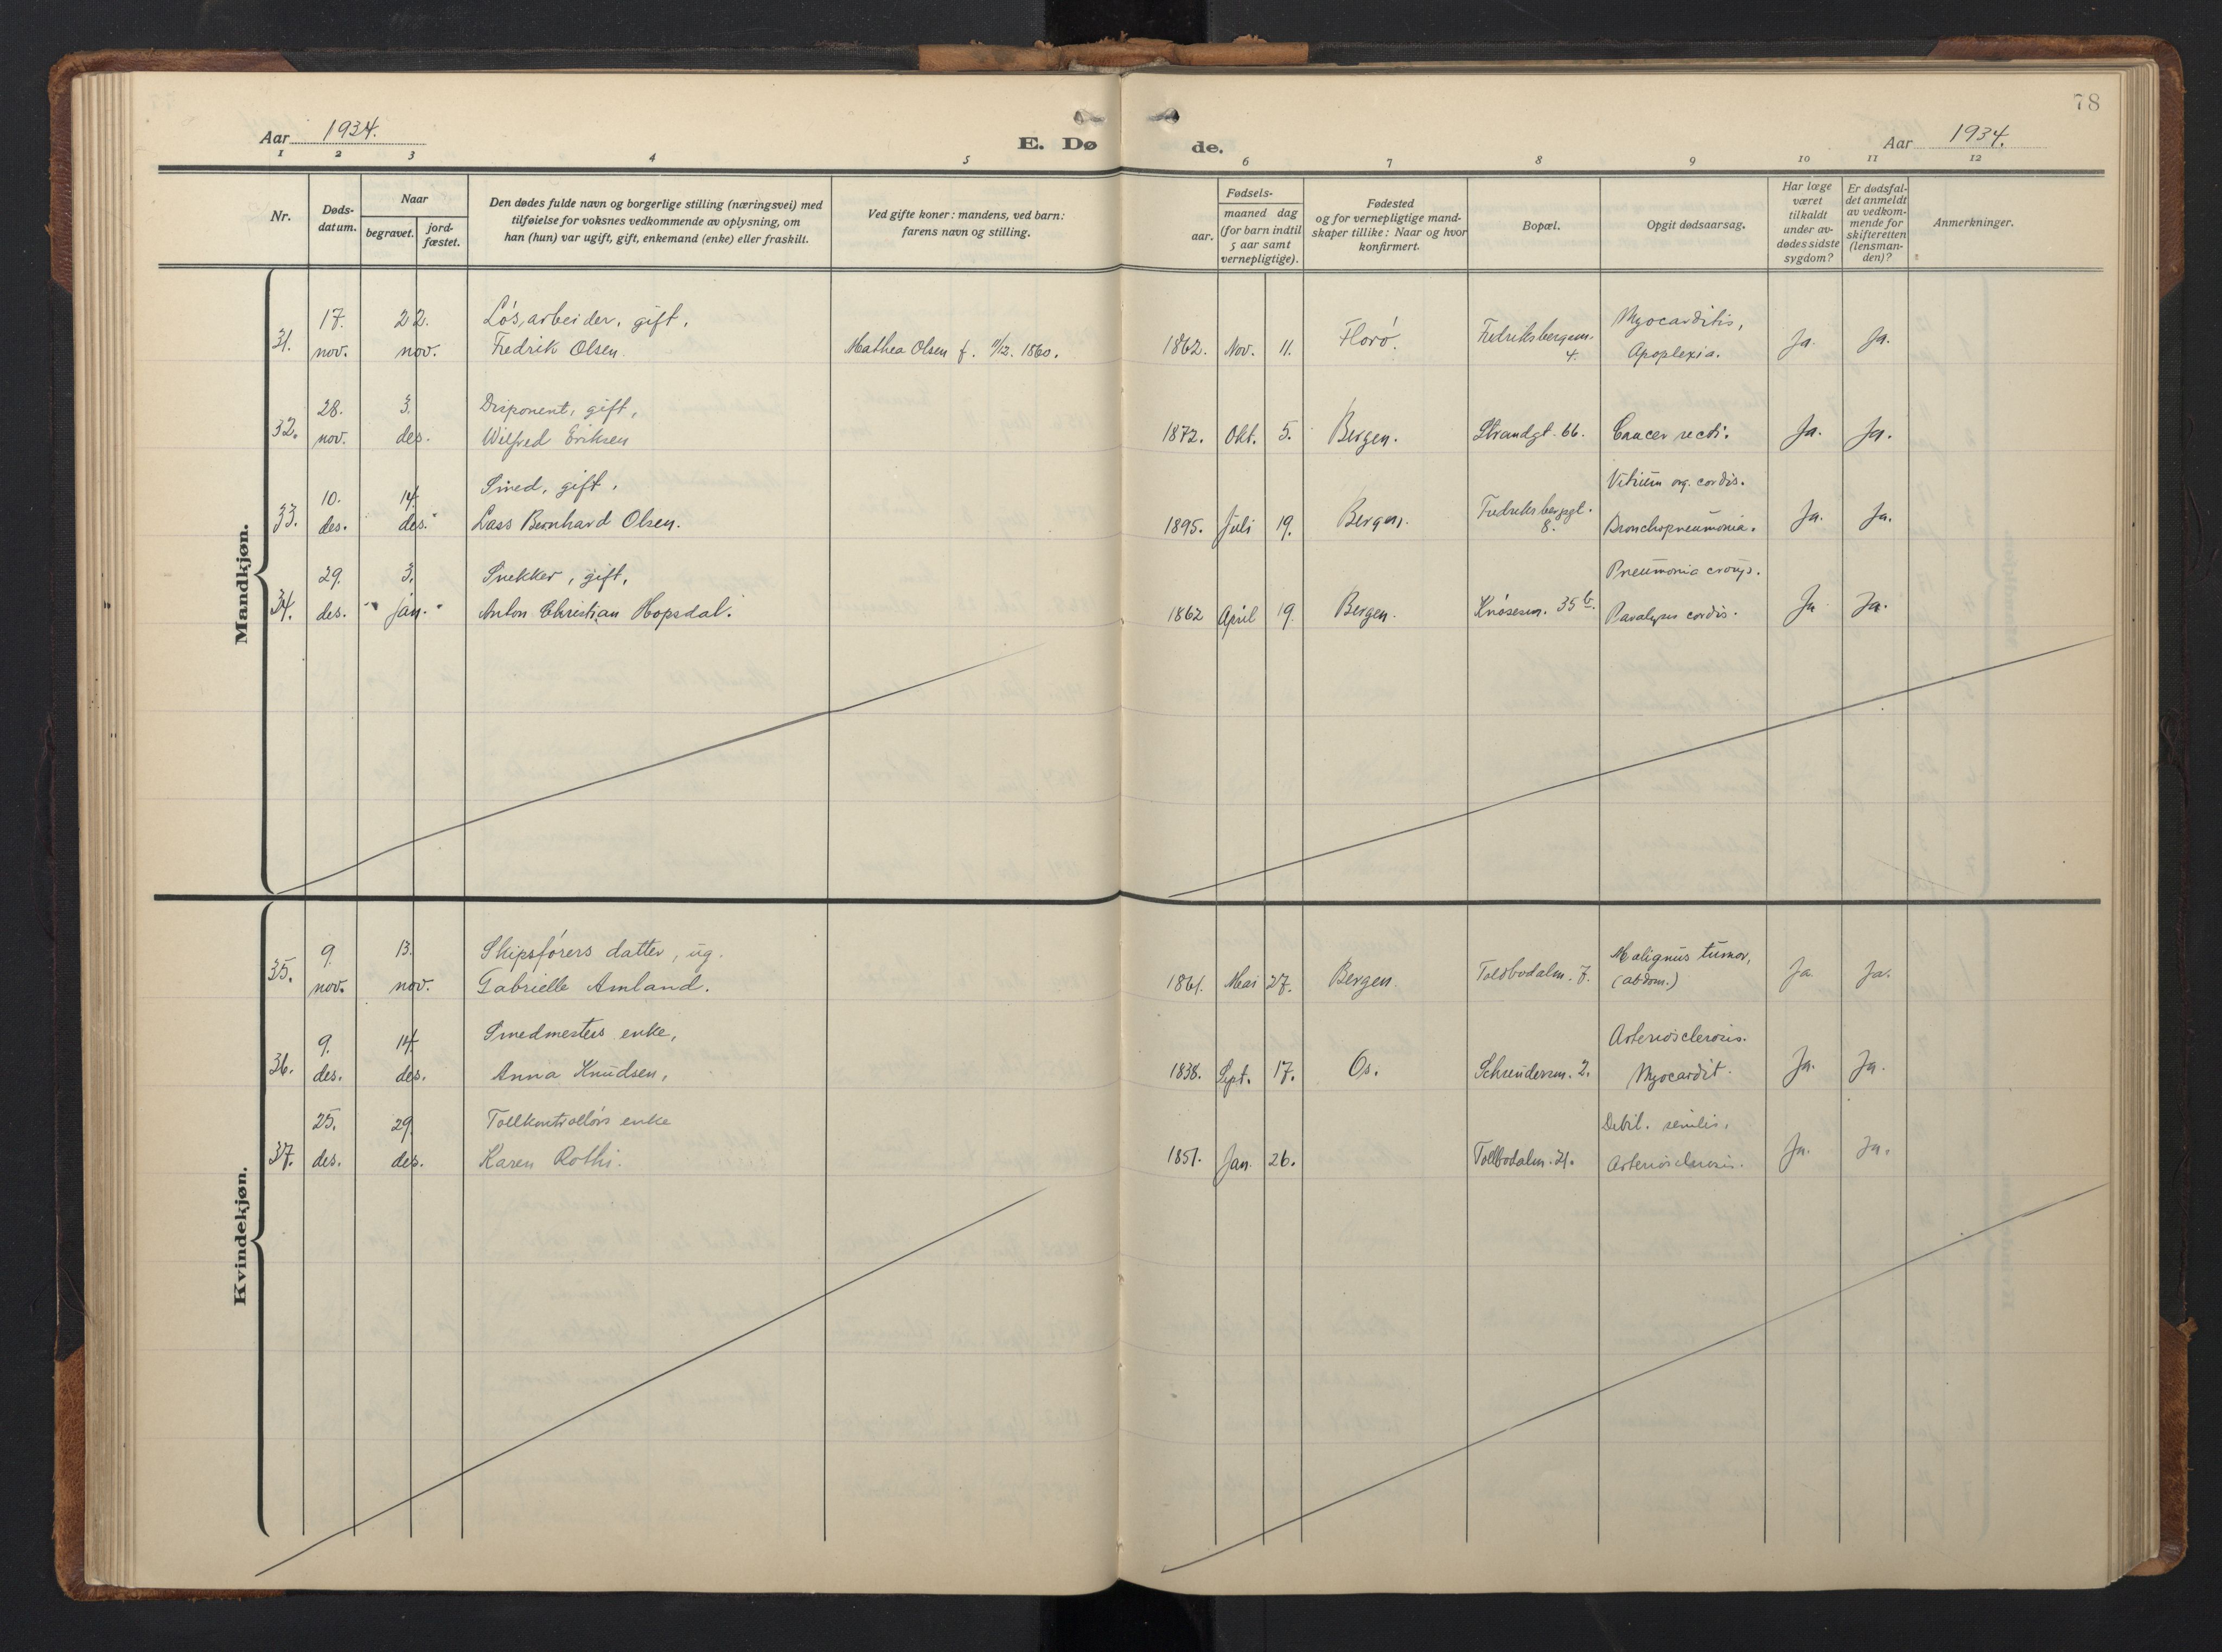 78
Aar 1934.
E. Dø de.
Aar 1934.
1 2 3 4 5 6 7 8 9 10 11 12
Nr.
Døds-
datum.
Naar
begravet.
jord-
fæstet.
Den dødes fulde navn og borgerlige stilling (næringsvei) med
tilføielse for voksnes vedkommende av oplysning, om
han (hun) var ugift, gift, enkemand (enke) eller fraskilt.
Ved gifte koner: mandens, ved barn:
farens navn og stilling.
Fødsels-
aar.
maaned dag
(for barn indtil
5 aar samt
vernepligtige).
Fødested
og for vernepligtige mand-
skaper tillike: Naar og hvor
konfirmert.
Bopæl.
Opgit dødsaarsag.
Har læge
været
tilkaldt
under av-
dødes sidste
sygdom?
Er dødsfal-
det anmeldt
av vedkom-
mende for
skifteretten
(lensman-
den)?
Anmerkninger.
Mandkjøn.
17. 22. Løsarbeider, gift, Myocarditis,
31. nov. nov. Fredrik Olsen. Mathea Olsen f. 11/12. 1860. 1862. Nov. 11. Florø. Fredriksbergsm. 4. Apoplexia. Ja. Ja.
28. 3. Disponent, gift,
32. nov. des. Wilfred Eriksen 1872. Okt. 5. Bergen. Strandgt. 66. Cancer recti. Ja. Ja.
10. 14. Smed, gift, Vitium org. cordis.
33. des. des. Lass Bernhard Olsen. 1895. Juli 19. Bergen. Fredriksbergsgt. 8. Bronchopneumonia. Ja. Ja.
29. 3. Snekker, gift, Pneumonia croup.
34. des. jan. Anton Christian Hopsdal. 1862 April 19. Bergen. Knøsesm. 35 b. Paralysis cordis. Ja Ja.
Kvindekjøn.
9. 13. Skipsførers datter, ug. Malignus tumor,
35. nov. nov. Gabrielle Amland. 1861. Mai 27. Bergen. Toldbodalm. 7. (abdom.) Ja Ja.
9. 14. Smedmesters enke, Arteriosclerosis.
36. des. des. Anna Knudsen, 1838. Sept. 17. Os. Schreudersm. 2. Myocardit. Ja. Ja.
25. 29. Tollkontrollørs enke Debil. senilis,
37. des. des. Karen Rothi. 1851. Jan. 26. Tollbodalm. 21. Arteriosclerosis. Ja. Ja.